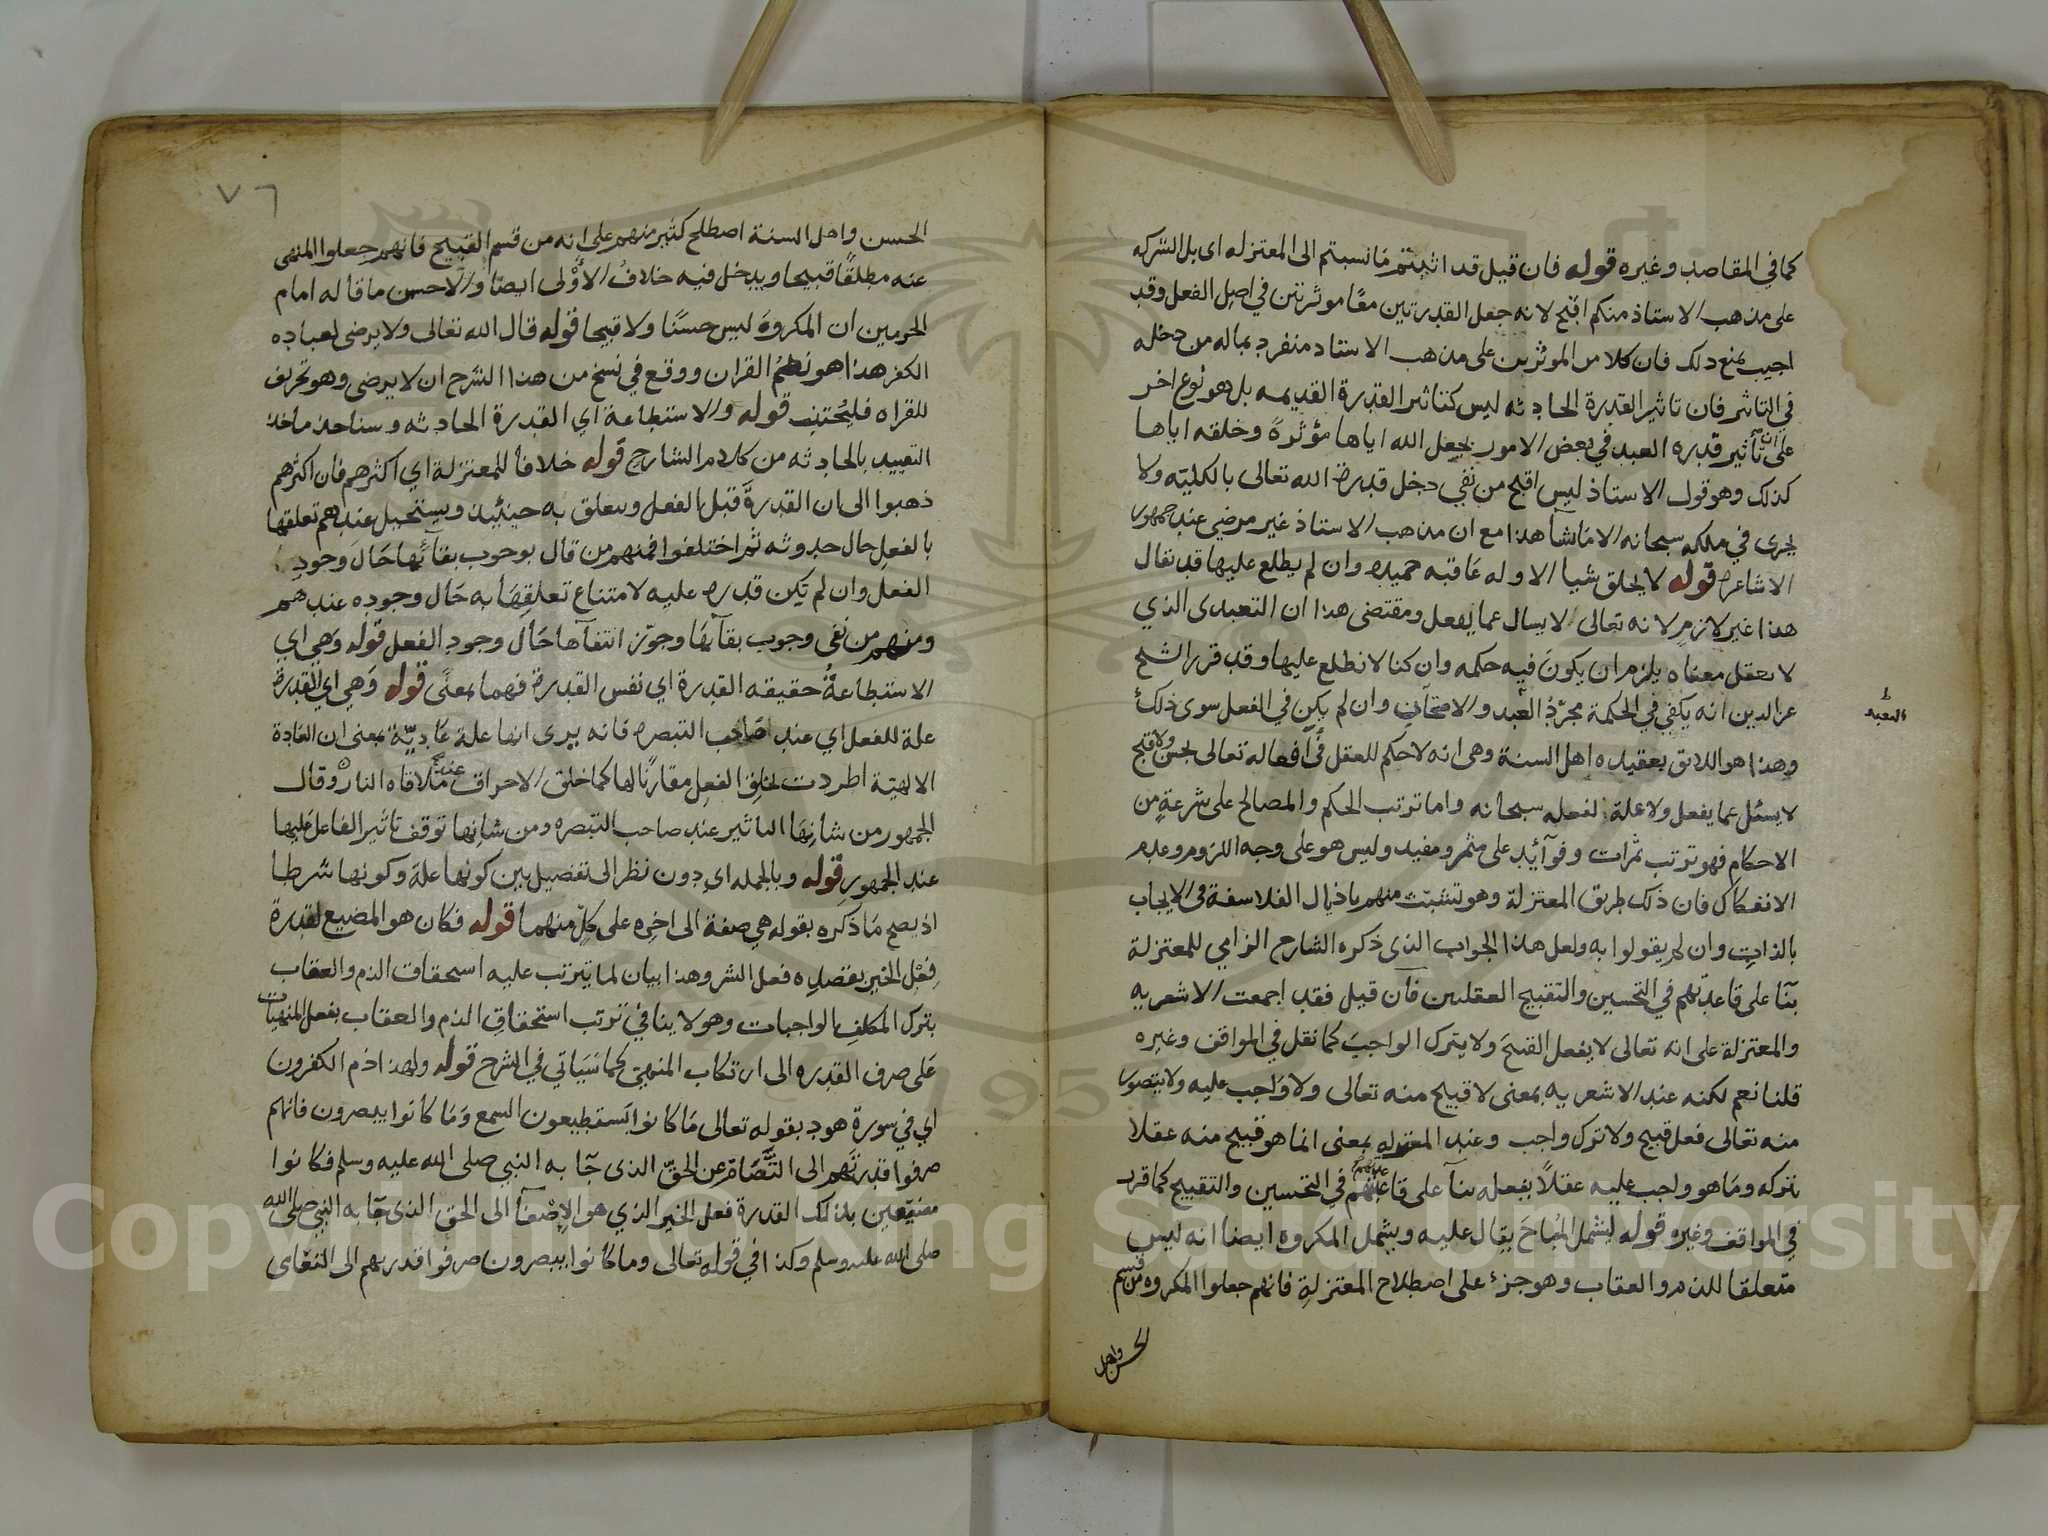 كما في المقاصد وغيره قوله فان قيل قد اثبتم ما نسبتم الى المعتزله اى بل الشركه
على مذهب الاستاذ منكم اقبح لانه جعل القدرتين معًا موثرتين في اصل الفعل وقد
اجيب بمنع ذلك فان كلا من الموثرين على مذهب الاستاد منفرد بماله من دخله
في التاثير فان تاثير القدرة الحادثه ليس كتاثير القدرة القديمه بل هو نوع اخر
على ان تأثير قدره العبد في بعض الامور بجعل الله اياها مؤثرةً وخلقه اياها
كذلك وهو قول الاستاذ ليس اقبح من نفي دخل قدرة الله تعالى بالكليه ولا
يجرى في ملكه سبحانه الا ما يشأ هذا مع ان مذهب الاستاذ غير مرضي عند جمهور
الاشاعرة قوله لا يخلق شيا الا وله عاقبه حميده وان لم يطلع عليها قد يقال
هذا غير لازم لانه تعالى لا يسال عما يفعل ومقتضى هذا ان التعبدى الذي
لا يعقل معناه يلزم ان يكونَ فيه حكمه وان كنا لا نطلع عليها وقد قرر الشيخ
عز الدين انه يكفي في الحكمة مجردُ العبد والامتحان وان لم يكن في الفعل سوى ذلك
ط
التعبد
وهذا هو اللائق بعقيده اهل السنة وهى انه لا حكم للعقل في أفعاله تعالى بحسن ولا قبح
لا يسئل عما يفعل ولا علة لفعله سبحانه واما ترتب الحكم والمصالح على شرعةٍ من
الاحكام فهو ترتب ثمرات وفوآئد على مثمر ومفيد وليس هو على وجه اللزوم وعدم
الانفكاك فان ذلك طريق المعتزلة وهو تشبث منهم باذيال الفلاسفة في الايجاب
بالذات وان لم يقولوا به ولعل هذا الجواب الذى ذكره الشارح الزامي للمعتزلة
بنآ على قاعدتهم في التحسين والتقبيح العقليين فان قيل فقد اجمعت الاشعريه
والمعتزلة على انه تعالى لا يفعل القبيحَ ولا يترك الواجبَ كما نقل في المواقف وغيره
قلنا نعم لكنه عند الاشعريه بمعنى لا قبيح منه تعالى ولا واجب عليه ولا يتصور
منه تعالى فعل قبيح ولا ترك واجب وعند المعتزله بمعنى انما هو قبيح منه عقلا
يتركه وما هو واجب عليه عقلاً يفعله بنآ على قاعدتهم في التحسين والتقبيح كما قرر
في المواقف وغيره قوله ليشمل المُباحَ يقال عليه ويشمل المكروه ايضا انه ليس
متعلقا للذم والعقاب وهو جزء على اصطلاح المعتزلةِ فانهم جعلوا المكروه من قسم
الحسن واهل
٧٦
الحسن واهل السنة اصطلح كثير منهم على انه من قسم القبيح فانهم جعلوا المنهى
عنه مطلقًا قبيحا ويدخل فيه خلافُ الأَوْلى ايضا والاحسن ما قاله امام
الحرمين ان المكروهَ ليس حسَنًا ولا قبيحا قوله قال الله تعالى ولا يرضى لعباده
الكفر هذا هو نظمُ القران ووقع في نسخ من هذا الشرح ان لا يرضى وهو تحريف
للقراه فليُجتنب قوله والاستطاعة اي القدرة الحادثه وسناخذ ماخذ
التقييد بالحادثه من كلام الشارح قوله خلافا للمعتزلة اي اكثرهم فان اكثرهم
ذهبوا الى ان القدرةَ قبل الفعل ويتعلق به حينئذ ويستحيل عندهم تعلقها
بالفعل حال حدوثه ثم اختلفوا فمنهم من قال بوجوب بقآئها حَالَ وجودِ
الفعل وان لم تكن قدرة عليه لامتناع تعلقِها به حَال وجوده عندهم
ومنهم من نفى وجوب بقآئها وجوّز انتفآها حَال وجودِ الفعل قوله وَهي اي
الاستطاعةُ حقيقه القدرة اي نفس القدرة فهما بمعنًى قوله وَهي اي القدرة
علة للفعل اي عند صَاحب التبصره فانه يرى انها علة عَاديّة بمعنى ان العَادة
الالهيّة اطردت بخلق الفعل مقارنًا لها كما خلق الاحراق عند ملاقاه النار وقال
الجمهور من شانِهَا التاثير عند صاحب التبصره ومن شانِها توقف تاثير الفاعل عَليها
عند الجمهورِ قوله وبالجمله اي دون نظر الى تفضيل بين كونها علة وكونها شرطا
اذ يصح مَا ذكره بقوله هي صفة الى اخره على كلّ منهما قوله فكان هو المضيع لقدرة
فِعْل الخير بقصدِه فعل الشر وهذا بيان لما يترتب عليه استحقاق الذم والعقاب
بترك المكلفِ الواجبات وهو لا ينافي ترتب استحقاقِ الذم والعقاب بفعل المنهيات
عَلى صرف القدره الى ارتكاب المنهيّ كما سَيَاتي في الشرح قوله ولهذا ذم الكفرون
اي في سورة هود بقوله تعالى مَا كانوا يَستطيعون السمعَ وَمَا كانوا يبصرون فانهم
صرفوا قدرتَهم الى التَّصَامِّ عن الحَقّ الذى جآ به النبي صلى الله عليه وسلم فكانوا
مضيّعين بذلك القدرة فعل الخير الذي هو الاِصْغآ الى الحق الذى جآ به النبي صلى الله
صلى الله عليه وسلم وكذا في قوله تعالى وما كانوا يبصرون صرفوا قدرتهم الى التعَامى